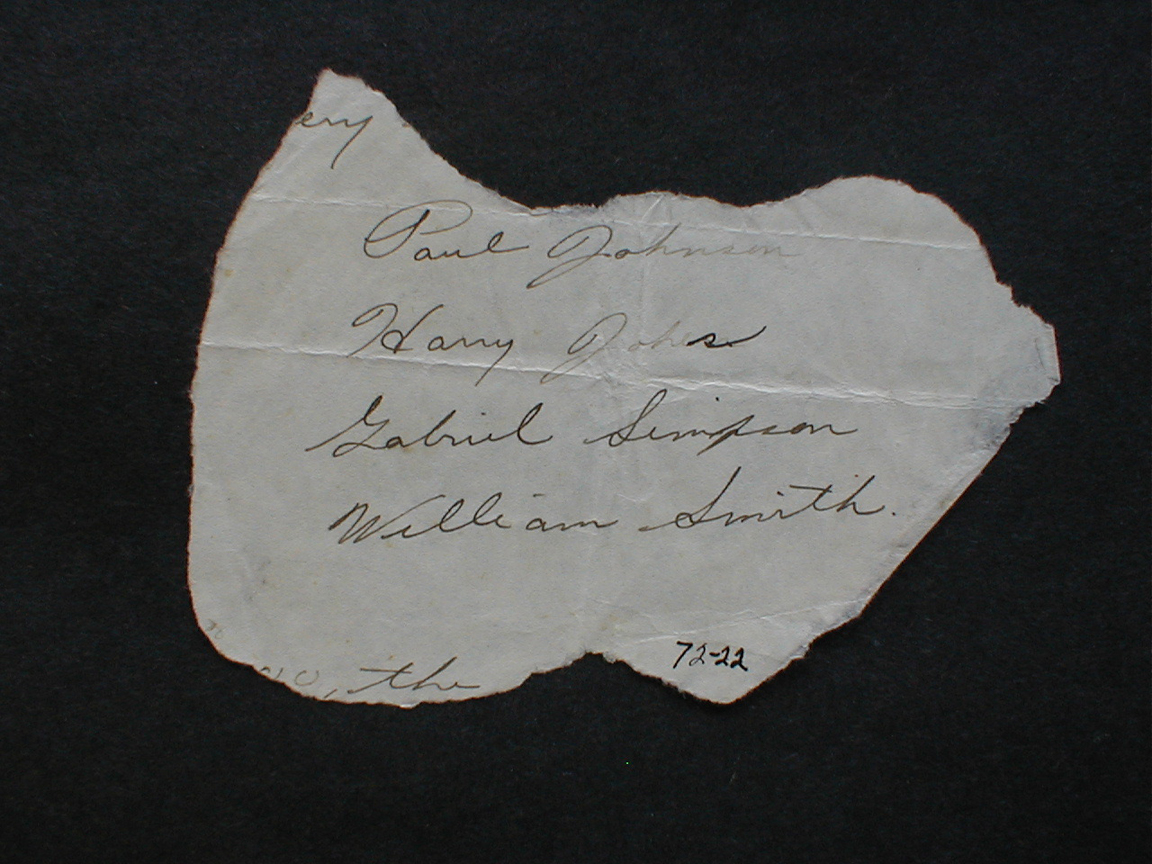 ery
Paul Johnson
Harry Jones
Gabriel Simpson
William Smith.
72-22
, the